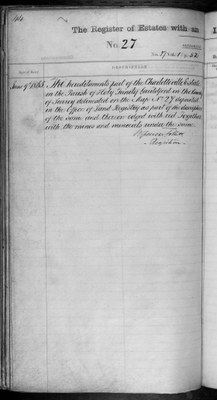 The Register of Estates with an
No. 27
DESCRIPTION
The hereditaments part of the Charlotteville Estate
in the Parish of Holy Trinity Guildford in the County
of Surrey delineated on the Map No. 27 deposited
in the Office of Land Registry as part of the description
of the same and thereon edged with red Together
with the mines and minerals under the same